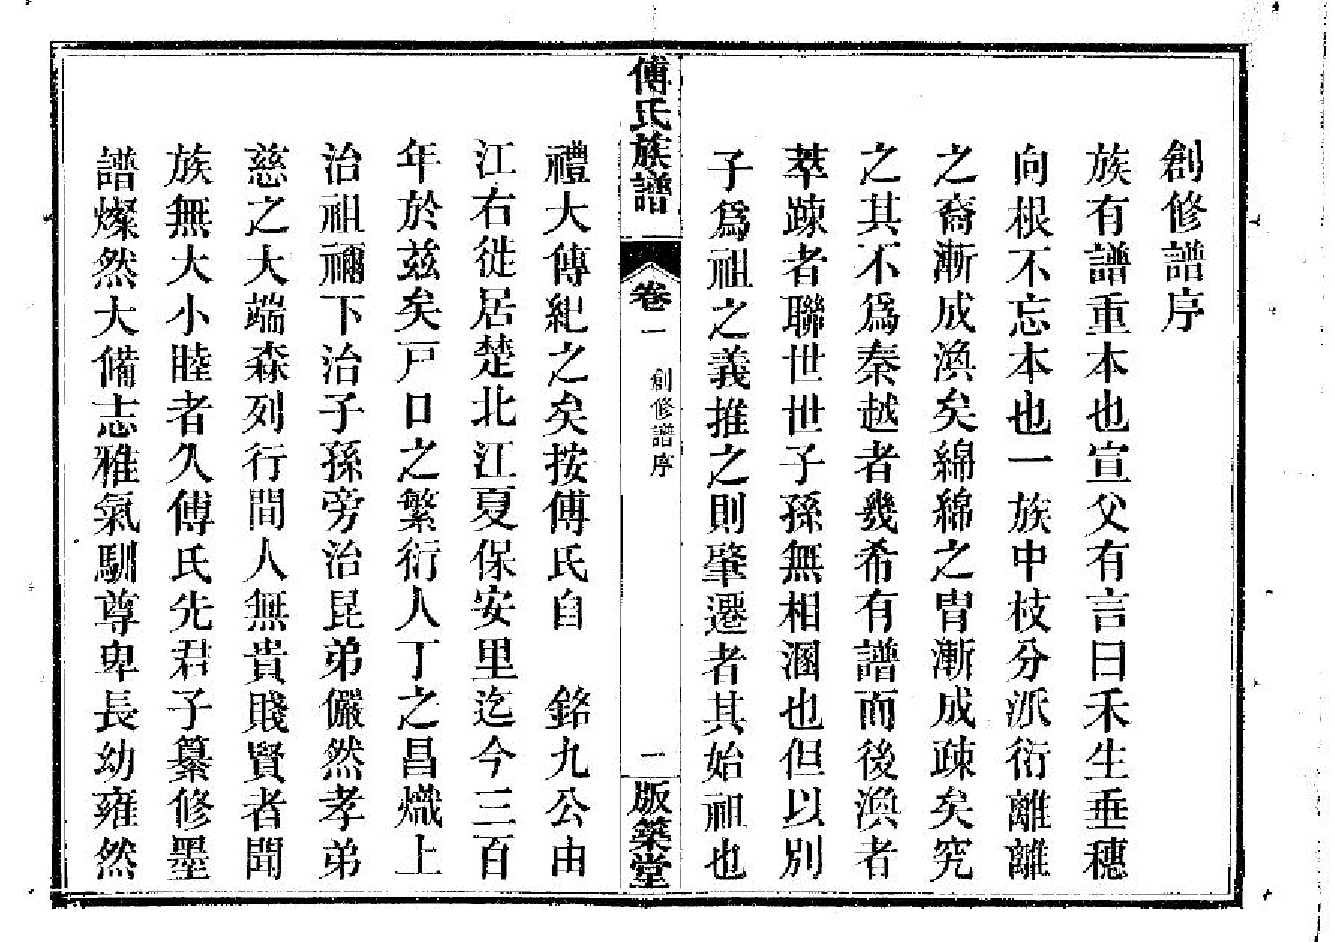 創修譜序
族有譜重本也宣父有言曰禾生垂穗
向根不忘本也一族中枝分派衍離離
之裔漸成渙矣綿綿之冑漸成疎矣究
之其不爲秦越者幾希有譜而後渙者
萃踈者聯世世子孫無相溷也但以別
子爲祖之義推之則肇遷者其始祖也
傅氏族譜
卷一
創修譜序
一
版築堂
禮大傳紀之矣按傅氏自　銘九公由
江右徙居楚北江夏保安里迄今三百
年於茲矣戸口之繁衍人丁之昌熾上
治祖禰下治子孫旁治昆弟儼然孝弟
慈之大端森列行間人無貴賤賢者聞
族無大小睦者久傅氏先君子纂修墨
譜燦然大備志雅氣馴尊卑長幼雍然